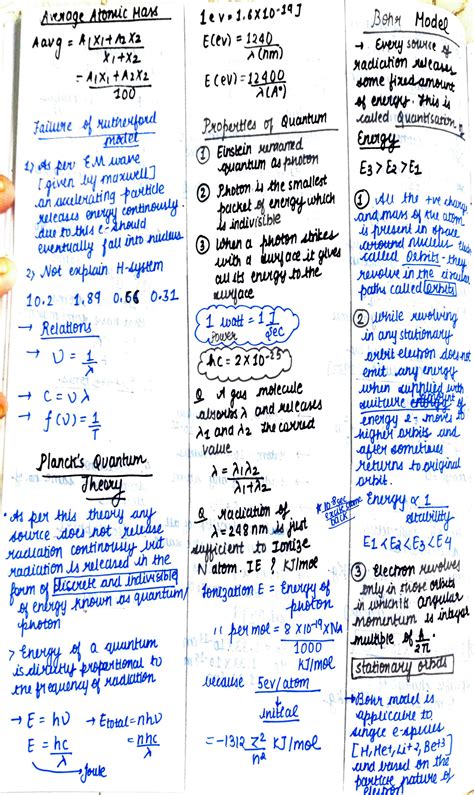 Average Atomic Mass
Aavg = A1X1 + A2X2
X1 + X2
= A1X1 + A2X2
100
Failure of rutherford
model
1) As per EM wave
[given by maxwell]
an accelerating particle
releases energy continously
due to this e- should
eventually fall into nucleus
2) Not explain H-system
10.2 1.89 0.66 0.31
→ Relations
→ υ = 1/λ
→ C = υλ
→ f(υ) = 1/T
Planck's Quantum
Theory
• As per this theory any
source does not release
radiation continously but
radiation is released in the
form of discrete and indivisible
of energy known as quantum/
photon
> Energy of a quantum
is directly proportional to
the frequency of radiation
→ E = hυ → Etotal = nhυ
E = hc/λ = nhc/λ
→ Joule
1 ev = 1.6X10-19 J
E(ev) = 1240
λ(nm)
E(ev) = 12400
λ(A°)
Properties of Quantum
① Einstein renamed
quantum as photon
② Photon is the smallest
packet of energy which
is indivisible
③ When a photon strikes
with a surface it gives
all its energy to the
surface
1 watt = 1 J/sec
Power
hc = 2X10-25
Q A gas molecule
absorbs λ and releases
λ1 and λ2 the
value
λ = λ1λ2
λ1+λ2
Q radiation of
λ=248nm is just
sufficient to Ionize
N atom. IE ? KJ/mol
Ionization E = Energy of
photon
" per mol = 8 X10-19 X NA
1000
KJ/mol
because 5ev/atom
↓
initial
= -1312 Z2/n2 KJ/mol
Bohr Model
→ Every source of
radiation releases
some fixed amount
of energy. This is
called Quantisation.
Energy
E3 > E2 > E1
① All the +ve charge
and mass of the atom
is present in space
around nucleus
called Orbits - they
revolve in the circular
paths called orbits
② while revolving
in any stationary
orbit electron does not
emit any energy
when supplied with
amount of
energy e- moves to
higher orbits and
after sometimes
returns to original
orbit.
* 10-8 sec
back
Energy ∝ 1
stability
E1 < E2 < E3 < E4
③ Electron revolves
only in those orbits
in which its angular
momentum is integral
multiple of h/2π.
stationary orbits
→ Bohr model is
applicable to
single e- species
[H, He+, Li+2, Be+3]
and based on the
particle nature of
electron